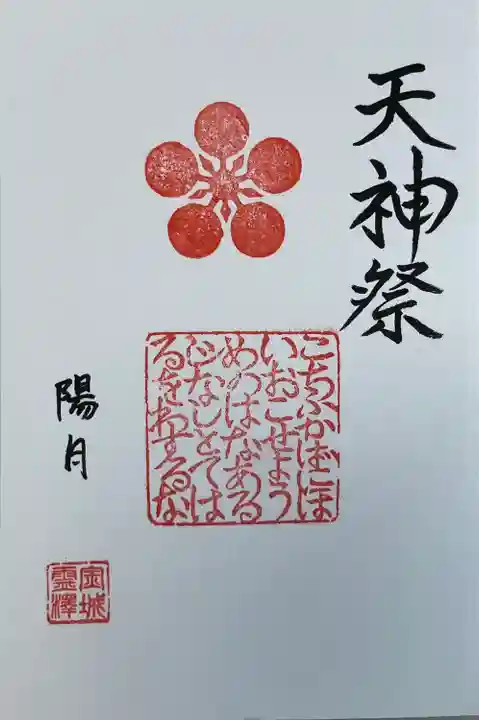 天神祭
こちふかばにほ
いおこせよう
めのはなある
じなしとては
るをわするな
陽月
金城
霊澤